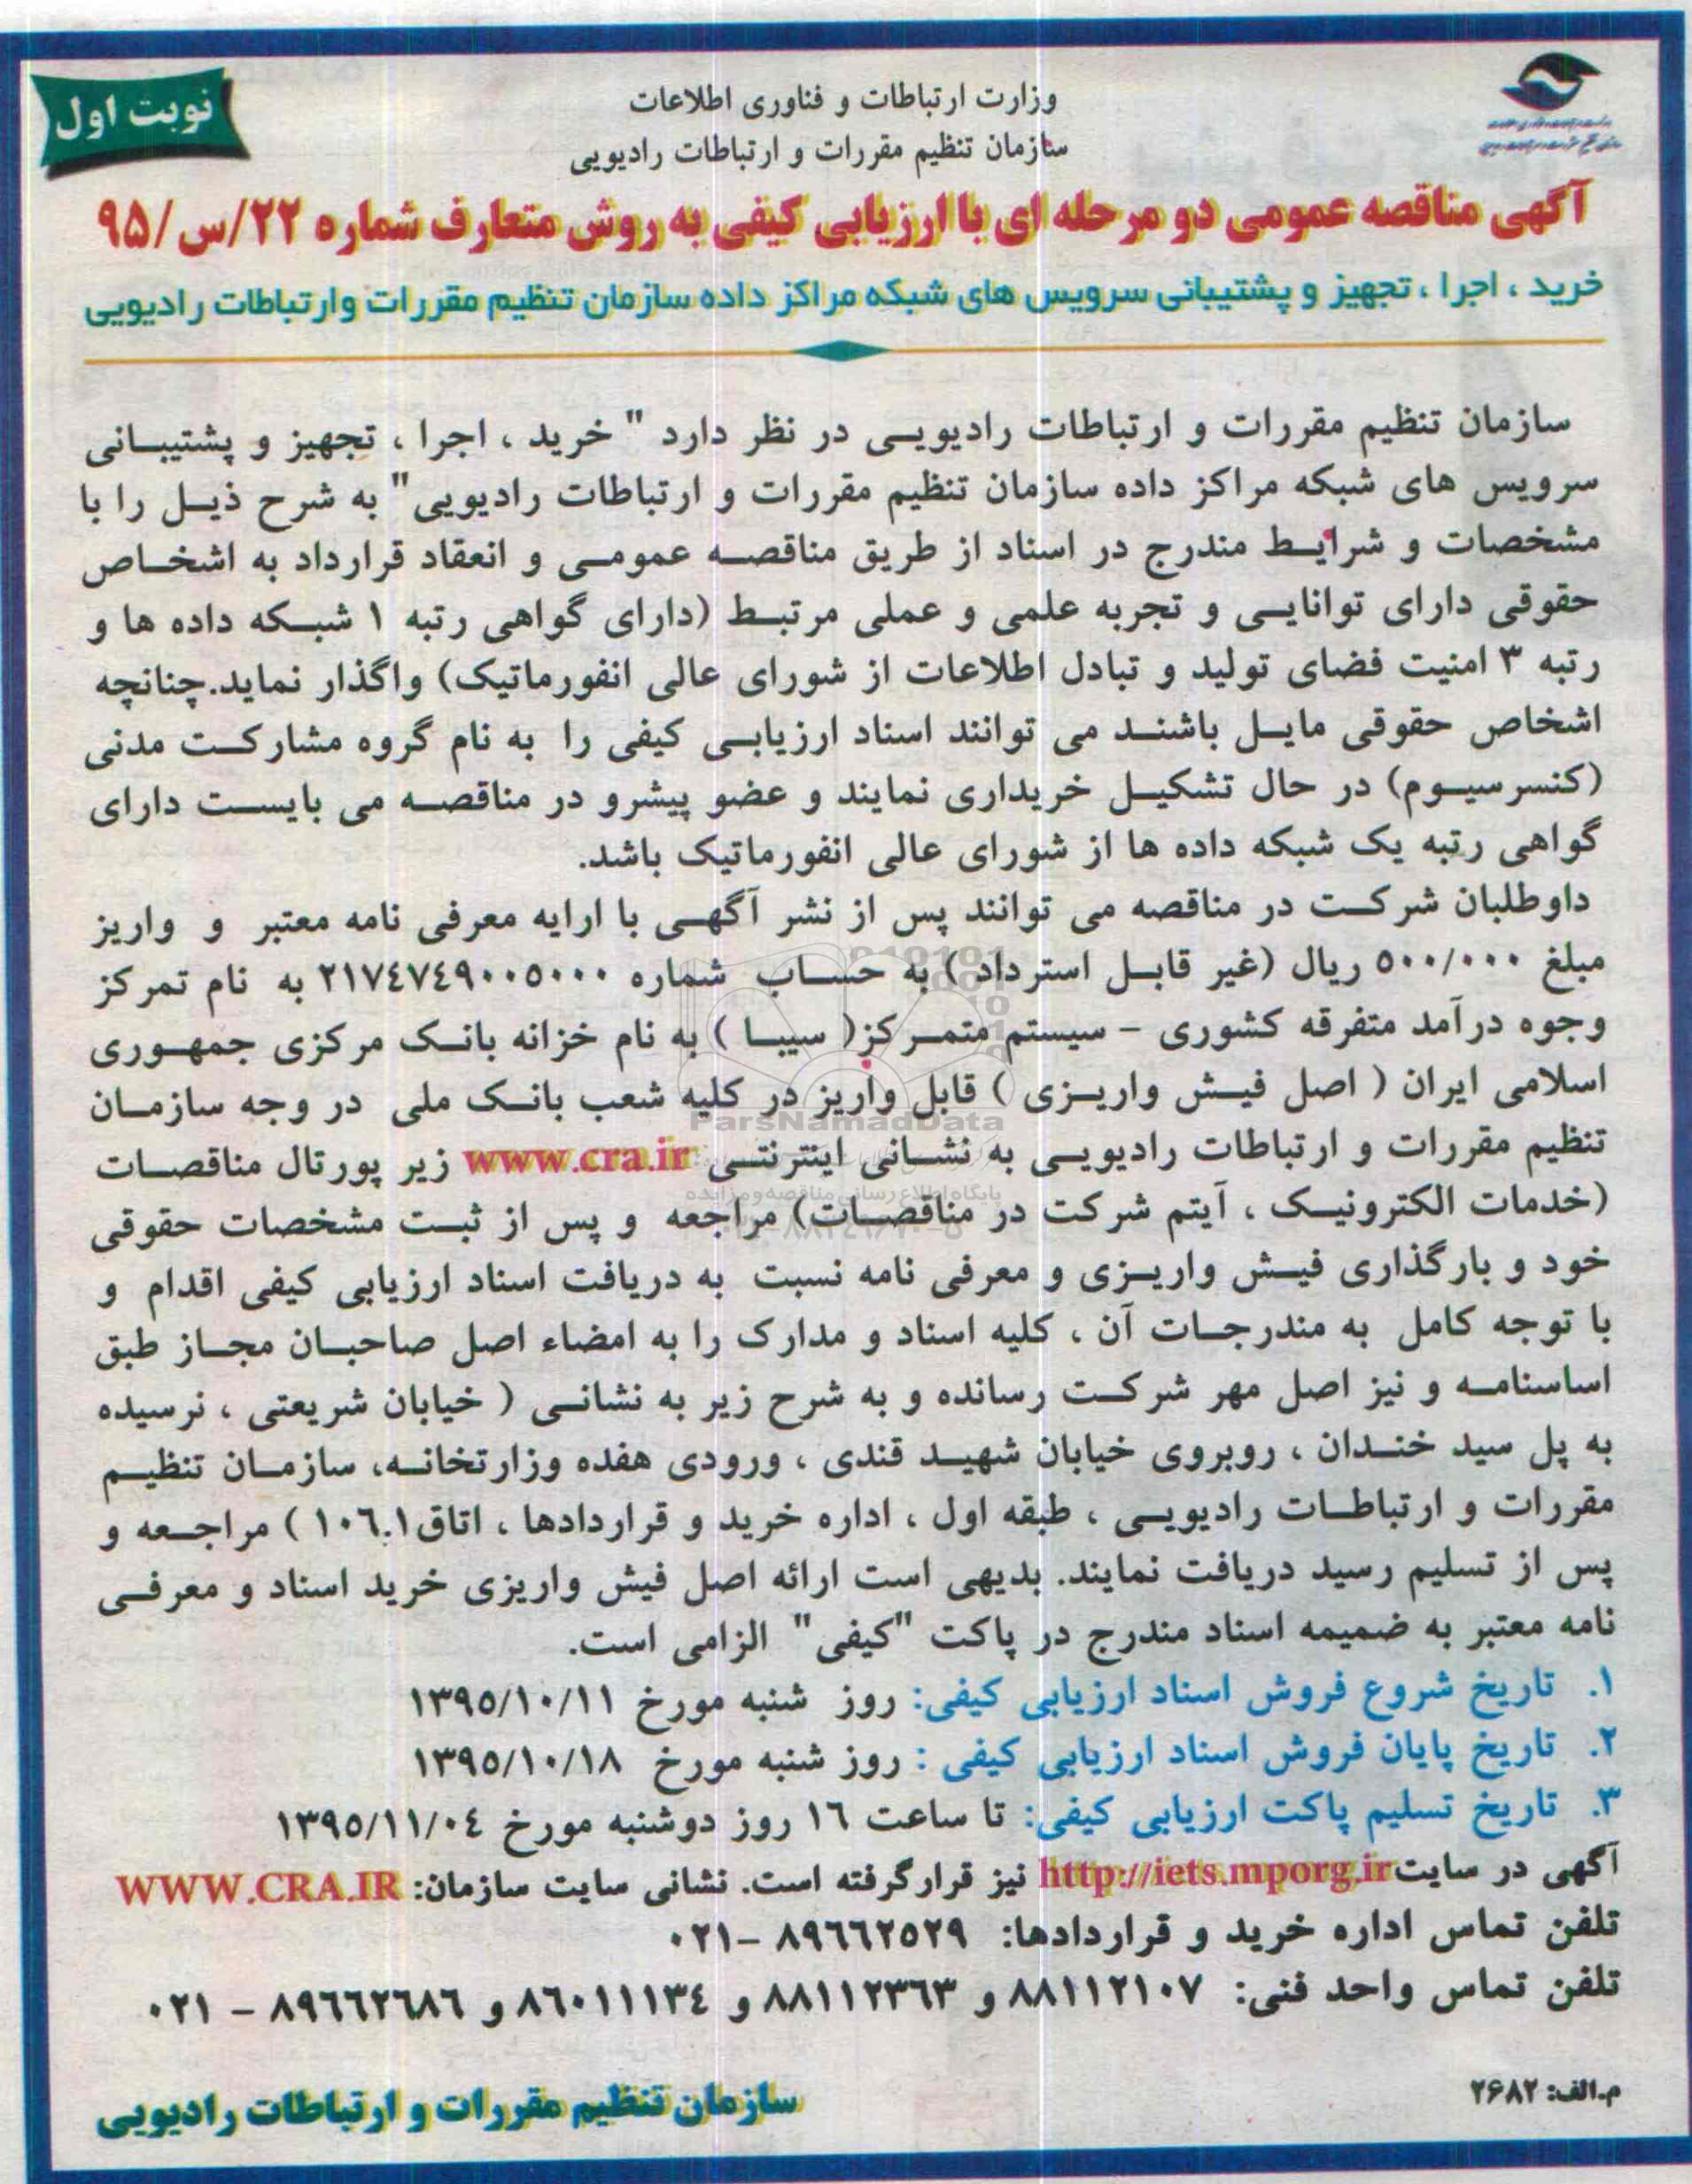 نوبت اول
وزارت ارتباطات و فناوری اطلاعات
سازمان تنظیم مقررات و ارتباطات رادیویی
آگهی مناقصه عمومی دو مرحله ای با ارزیابی کیفی به روش متعارف شماره ۲۲/س/۹۵
خرید ، اجرا ، تجهیز و پشتیبانی سرویس های شبکه مراکز داده سازمان تنظیم مقررات وارتباطات رادیویی
سازمان تنظیم مقررات و ارتباطات رادیویی در نظر دارد " خرید ، اجرا ، تجهیز و پشتیبانی
سرویس های شبکه مراکز داده سازمان تنظیم مقررات و ارتباطات رادیویی" به شرح ذیل را با
مشخصات و شرایط مندرج در اسناد از طریق مناقصه عمومی و انعقاد قرارداد به اشخاص
حقوقی دارای توانایی و تجربه علمی و عملی مرتبط (دارای گواهی رتبه ۱ شبکه داده ها و
رتبه ۳ امنیت فضای تولید و تبادل اطلاعات از شورای عالی انفورماتیک) واگذار نماید.چنانچه
اشخاص حقوقی مایل باشند می توانند اسناد ارزیابی کیفی را به نام گروه مشارکت مدنی
(کنسرسیوم) در حال تشکیل خریداری نمایند و عضو پیشرو در مناقصه می بایست دارای
گواهی رتبه یک شبکه داده ها از شورای عالی انفورماتیک باشد.
داوطلبان شرکت در مناقصه می توانند پس از نشر آگهی با ارایه معرفی نامه معتبر و واریز
مبلغ ۵۰۰/۰۰۰ ریال (غیر قابل استرداد ) به حساب شماره ۲۱۷٤۷٤۹۰۰۵۰۰۰ به نام تمرکز
وجوه درآمد متفرقه کشوری - سیستم متمرکز( سیبا ) به نام خزانه بانک مرکزی جمهوری
اسلامی ایران ( اصل فیش واریزی ) قابل واریز در کلیه شعب بانک ملی در وجه سازمان
تنظیم مقررات و ارتباطات رادیویی به نشانی اینترنتی www.cra.ir زیر پورتال مناقصات
(خدمات الکترونیک ، آیتم شرکت در مناقصات) مراجعه و پس از ثبت مشخصات حقوقی
خود و بارگذاری فیش واریزی و معرفی نامه نسبت به دریافت اسناد ارزیابی کیفی اقدام و
با توجه کامل به مندرجات آن ، کلیه اسناد و مدارک را به امضاء اصل صاحبان مجاز طبق
اساسنامه و نیز اصل مهر شرکت رسانده و به شرح زیر به نشانی ( خیابان شریعتی ، نرسیده
به پل سید خندان ، روبروی خیابان شهید قندی ، ورودی هفده وزارتخانه، سازمان تنظیم
مقررات و ارتباطات رادیویی ، طبقه اول ، اداره خرید و قراردادها ، اتاق۱۰٦.۱ ) مراجعه و
پس از تسلیم رسید دریافت نمایند. بدیهی است ارائه اصل فیش واریزی خرید اسناد و معرفی
نامه معتبر به ضمیمه اسناد مندرج در پاکت "کیفی" الزامی است.
۱. تاریخ شروع فروش اسناد ارزیابی کیفی: روز شنبه مورخ ۱۳۹۵/۱۰/۱۱
۲. تاریخ پایان فروش اسناد ارزیابی کیفی : روز شنبه مورخ ۱۳۹۵/۱۰/۱۸
۳. تاریخ تسلیم پاکت ارزیابی کیفی: تا ساعت ۱٦ روز دوشنبه مورخ ۱۳۹۵/۱۱/۰٤
آگهی در سایت http://iets.mporg.ir نیز قرارگرفته است. نشانی سایت سازمان: WWW.CRA.IR
تلفن تماس اداره خرید و قراردادها: ۸۹٦٦۲۵۲۹ -۰۲۱
تلفن تماس واحد فنی: ۸۸۱۱۲۱۰۷ و ۸۸۱۱۲۳٦۳ و ۸٦۰۱۱۱۳٤ و ۸۹٦٦۲٦۸٦ - ۰۲۱
م.الف: ۲۶۸۲
سازمان تنظیم مقررات و ارتباطات رادیویی
ParsNamadData
پایگاه اطلاع رسانی مناقصه و مزایده